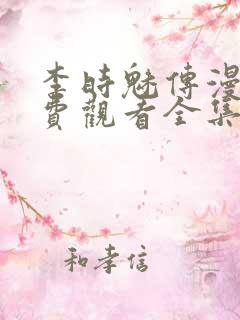 李時魅傳漫
費觀看全集
和孝信